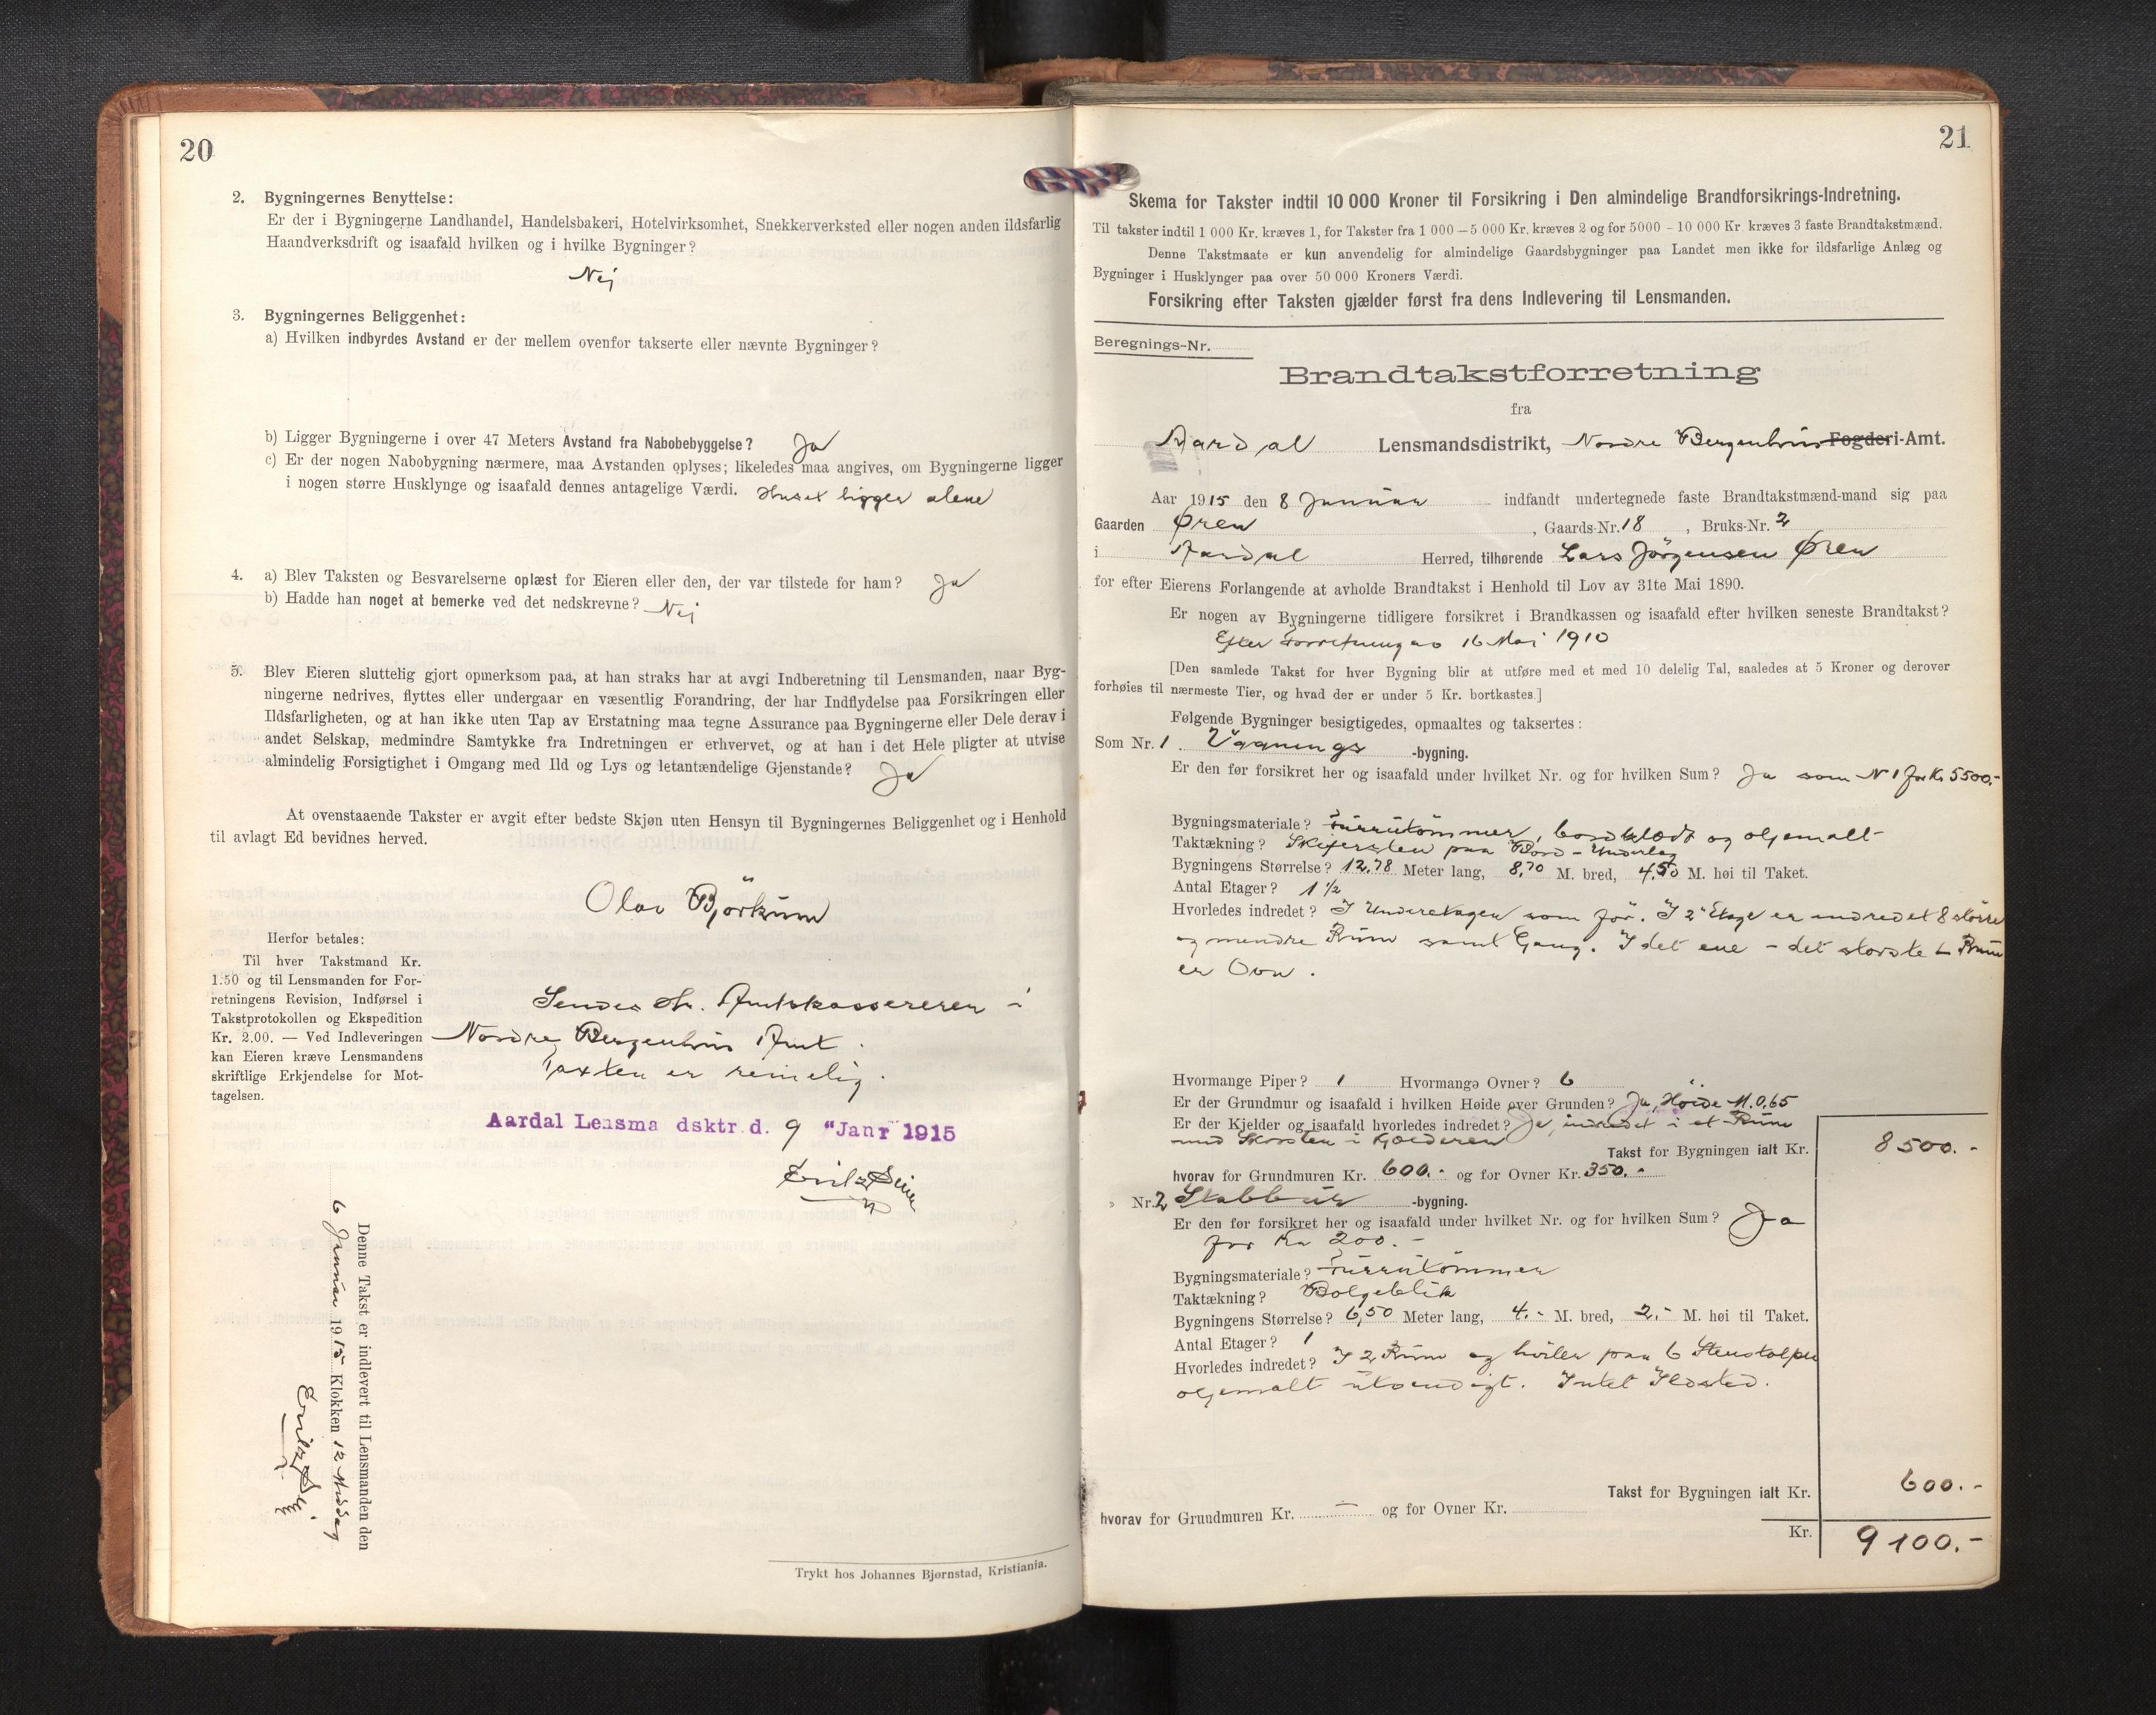 20
2. Bygningernes Benyttelse:
Er der i Bygningerne Landhandel, Handelsbakeri, Hotelvirksomhet, Snekkerverksted eller nogen anden ildsfarlig
Haandverksdrift og isaafald hvilken og i hvilke Bygninger?
Nej
3. Bygningernes Beliggenhet:
a) Hvilken indbyrdes Avstand er der mellem ovenfor takserte eller nævnte Bygninger?
b) Ligger Bygningerne i over 47 Meters Avstand fra Nabobebyggelse? Ja
c) Er der nogen Nabobygning nærmere, maa Avstanden oplyses; likeledes maa angives, om Bygningerne ligger
i nogen større Husklynge og isaafald dennes antagelige Værdi. Huset ligger alene
4. a) Blev Taksten og Besvarelserne oplæst for Eieren eller den, der var tilstede for ham? Ja
b) Hadde han noget at bemerke ved det nedskrevne? Nej
5. Blev Eieren sluttelig gjort opmerksom paa, at han straks har at avgi Indberetning til Lensmanden, naar Byg-
ningerne nedrives, flyttes eller undergaar en væsentlig Forandring, der har Indflydelse paa Forsikringen eller
Ildsfarligheten, og at han ikke uten Tap av Erstatning maa tegne Assurance paa Bygningerne eller Dele derav i
andet Selskap, medmindre Samtykke fra Indretningen er erhvervet, og at han i det Hele pligter at utvise
almindelig Forsigtighet i Omgang med Ild og Lys og letantændelige Gjenstande? Ja
At ovenstaaende Takster er avgit efter bedste Skjøn uten Hensyn til Bygningernes Beliggenhet og i Henhold
til avlagt Ed bevidnes herved.
Olav Björkum
Herfor betales:
Til hver Takstmand Kr.
1.50 og til Lensmanden for For-
retningens Revision, Indførsel i
Takstprotokollen og Ekspedition
Kr. 2.00. — Ved Indleveringen
kan Eieren kræve Lensmandens
skriftlige Erkjendelse for Mot-
tagelsen.
Sendes Hr. Amtskassereren i
Nordre Bergenhus Amt.
Taxten er rimelig.
Aardal Lensma dsktr. d. 9 "Janr 1915
Denne Takst er indlevert til Lensmanden den
6 Januar 1915 Klokken 12 Middag
Trykt hos Johannes Bjørnstad, Kristiania.
21
Skema for Takster indtil 10 000 Kroner til Forsikring i Den almindelige Brandforsikrings-Indretning.
Til takster indtil 1 000 Kr. kræves 1, for Takster fra 1 000 — 5 000 Kr. kræves 2 og for 5000 - 10 000 Kr kræves 3 faste Brandtakstmænd.
Denne Takstmaate er kun anvendelig for almindelige Gaardsbygninger paa Landet men ikke for ildsfarlige Anlæg og
Bygninger i Husklynger paa over 50 000 Kroners Værdi.
Forsikring efter Taksten gjælder først fra dens Indlevering til Lensmanden.
Beregnings-Nr.
Brandtakstforretning
fra
Aardal Lensmandsdistrikt, Nordre Bergenhus Fogderi-Amt.
Aar 1915 den 8 Januar indfandt undertegnede faste Brandtakstmænd-mand sig paa
Gaarden Øren, Gaards-Nr. 18, Bruks-Nr. 2
i Aardal Herred, tilhørende Lars Jörgensen Øren
for efter Eierens Forlangende at avholde Brandtakst i Henhold til Lov av 31te Mai 1890.
Er nogen av Bygningerne tidligere forsikret i Brandkassen og isaafald efter hvilken seneste Brandtakst?
Efter Forretning av 16 Mai 1910
[Den samlede Takst for hver Bygning blir at utføre med et med 10 delelig Tal, saaledes at 5 Kroner og derover
forhøies til nærmeste Tier, og hvad der er under 5 Kr. bortkastes.]
Følgende Bygninger besigtigedes, opmaaltes og taksertes:
Som Nr. 1 Vaanings -bygning.
Er den før forsikret her og isaafald under hvilket Nr. og for hvilken Sum? Ja som N 1 for Kr 5500.-
Bygningsmateriale? Furrutömmer, bordklædt og oljemalt
Taktækning? Skifersten paa Bord-Underlag
Bygningens Størrelse? 12,78 Meter lang, 8,70 M. bred, 4,50 M. høi til Taket.
Antal Etager? 1 ½
Hvorledes indredet? I Underetagen som för. I 2 Etage er indredet 8 större
og mindre Rum samt Gang. I det ene - det störste - Rum
er Ovn.
Hvormange Piper? 1 Hvormange Ovner? 6
Er der Grundmur og isaafald i hvilken Høide over Grunden? Ja, Höide M. 0,65
Er der Kjelder og isaafald hvorledes indredet? Ja, indredet i et Rum
med Skorsten i Kjælderen
Takst for Bygningen ialt Kr. 8500.-
hvorav for Grundmuren Kr. 600.- og for Ovner Kr. 350.-
Nr. 2 Stabbur -bygning.
Er den før forsikret her og isaafald under hvilket Nr. og for hvilken Sum? Ja
for Kr 200.-
Bygningsmateriale? Furrutömmer
Taktækning? Bolgeblik
Bygningens Størrelse? 6,50 Meter lang, 4.- M. bred, 2.- M. høi til Taket.
Antal Etager? 1
Hvorledes indredet? I 2 Rum og hviler paa 6 Stenstolper
oljemalt utvendigt. Intet Ildsted.
Takst for Bygningen ialt Kr. 600.-
hvorav for Grundmuren Kr. — og for Ovner Kr.
Kr. 9100.-